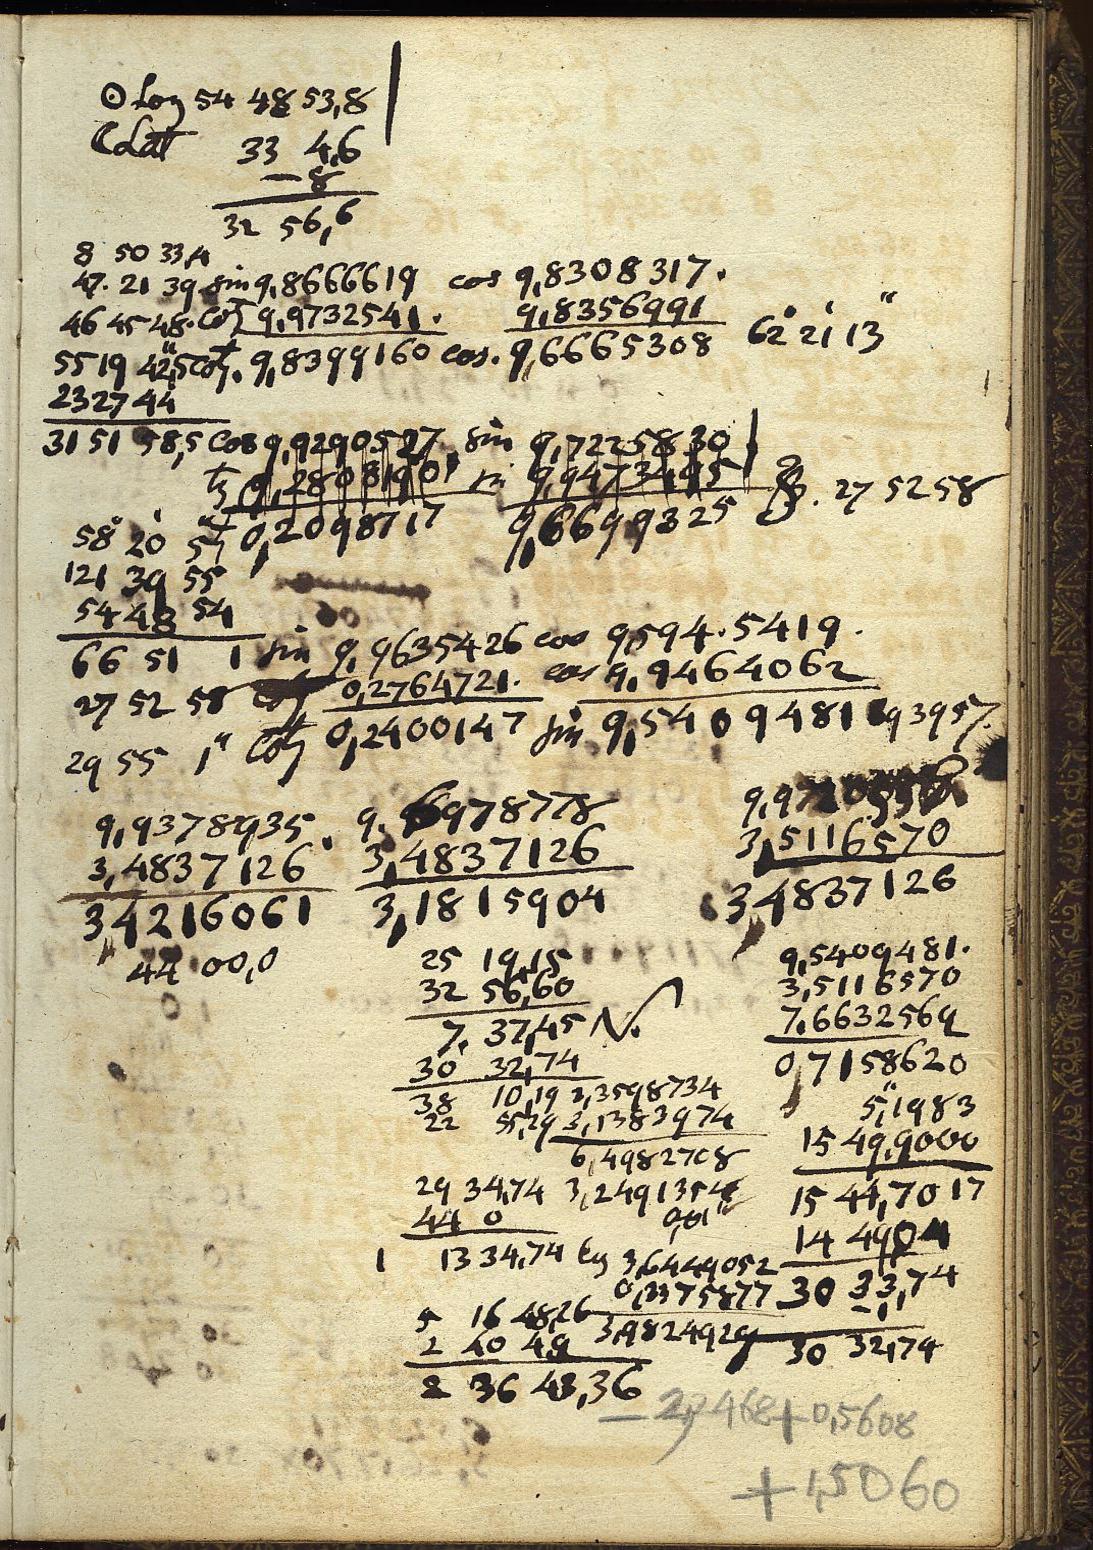 ☉ Log 54 48 53,8
☾ Lat 33 4,6
— 8
32 56,6
8 50 33,4
47. 21 39 sin 9,8666619 cos 9,8308317.
46 45 48. cotg 9,9732541. 9,8356991
55 19 42,5 cotg. 9,8399160 cos. 9,6665308 62° 21' 13"
23 27 44
31 51 58,5 cos 9,9290527 sin 9,7225830
tg 0,2808190 sin 9,9473495 27 52 58
58° 20' 5" 0,2098717 9,6699325
121 39 55
54 48 54
66 51 1 sin 9,9635426 cos 9,594.5419.
27 52 58 cotg 0,2764721. cos 9,9464062
29 55 1" cotg 0,2400147 sin 9,5409481 93957.
9,9378935. 9,6978778
3,4837126 3,4837126 3,5116570
3,4216061 3,1815904 3,4837126
44 00,0
25 19,15 9,5409481.
32 56,60 3,5116570
7. 37,45 N. 7,6632569
30 32,74 0,7158620
38 10,19 3,3598734 5",1983
22 55,29 3,1383974 15 49,9000
6,4982708
29 34,74 3,2491354 15 44,7017
44 0 0,01" 14 49,04
1 13 34,74 lg 3,6449052 30 33,74
0,3375877 -1,
5 16 48,26 3,9824929 30 32,74
2 40 49
2 36 48,36
— 2,7468 + 0,5608
+ 1,5060